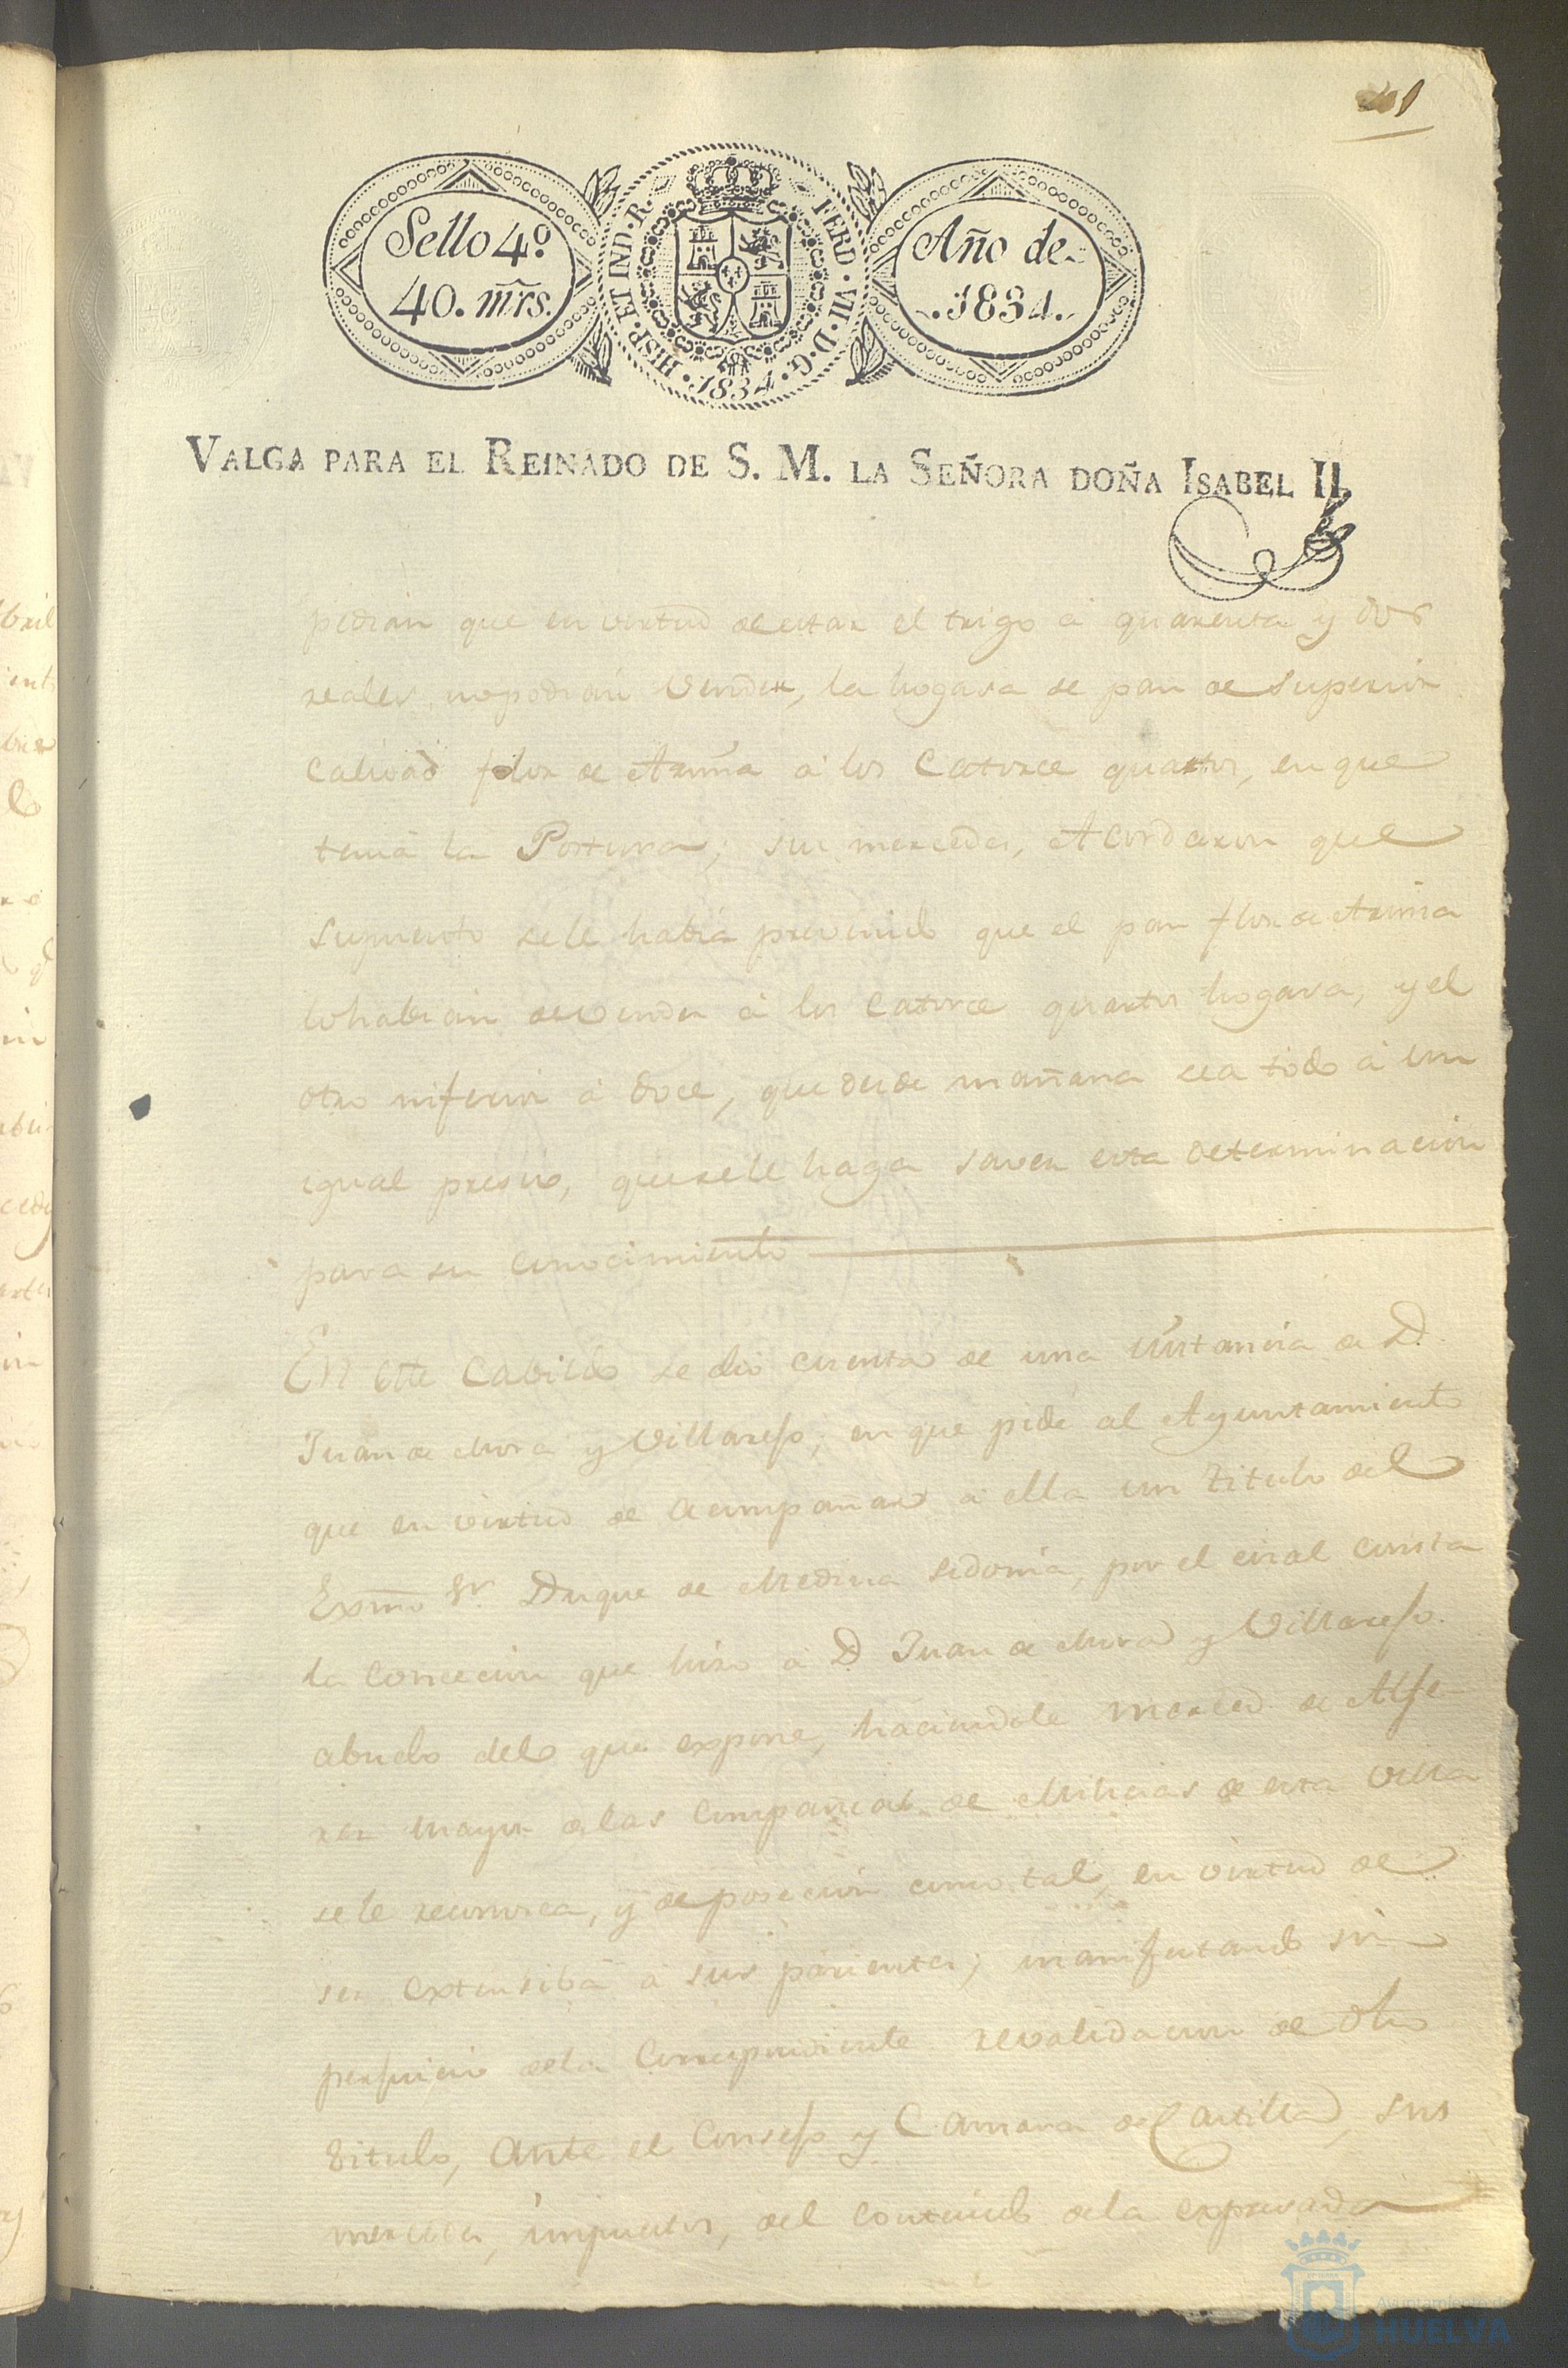 Sello 4º
40. mrs.
HISP. ET IND. R.
FERD. VII. D. G.
.1834.
Año de
.1834.
VALGA PARA EL REINADO DE S. M. LA SEÑORA DOÑA ISABEL II.
pedian que en virtud de estar el trigo á quarenta y dos
reales, no podian vender, la hogasa de pan de superior
calidad flor de Arina á los catorce quartos, en que
tenia la Postura; sus mercedes, Acordaron que
supuesto sele habia prevenido que el pan flor de Arina
lo habian de vender á los catorce quartos hogasa, y el
otro inferior á doce, que desde mañana sea todo á un
igual presio, que sele haga saver esta determinacion
para su conocimiento
En este Cabildo se dio cuenta de una instancia de D.
Juan de Mora y Villarejo, en que pide al Ayuntamiento
que en virtud de acompañar á ella un titulo del
Exmo Sr. Duque de Medina Sidonia, por el cual consta
la concecion que hizo á D Juan de Mora y Villarejo.
abuelo del que expone, haciendole merced de Alfe-
rez mayor de las compañias de Milicias de esta villa
se le reconosca, y de posecion como tal, en virtud de
ser extensiba á sus parientes; manifestando sin
perjuicio dela correspondiente revalidacion de dho
titulo, Ante el Consejo y Camara de Castilla, sus
mercedes, impuestos, del contenido dela expresada
Ayuntamiento de
HUELVA